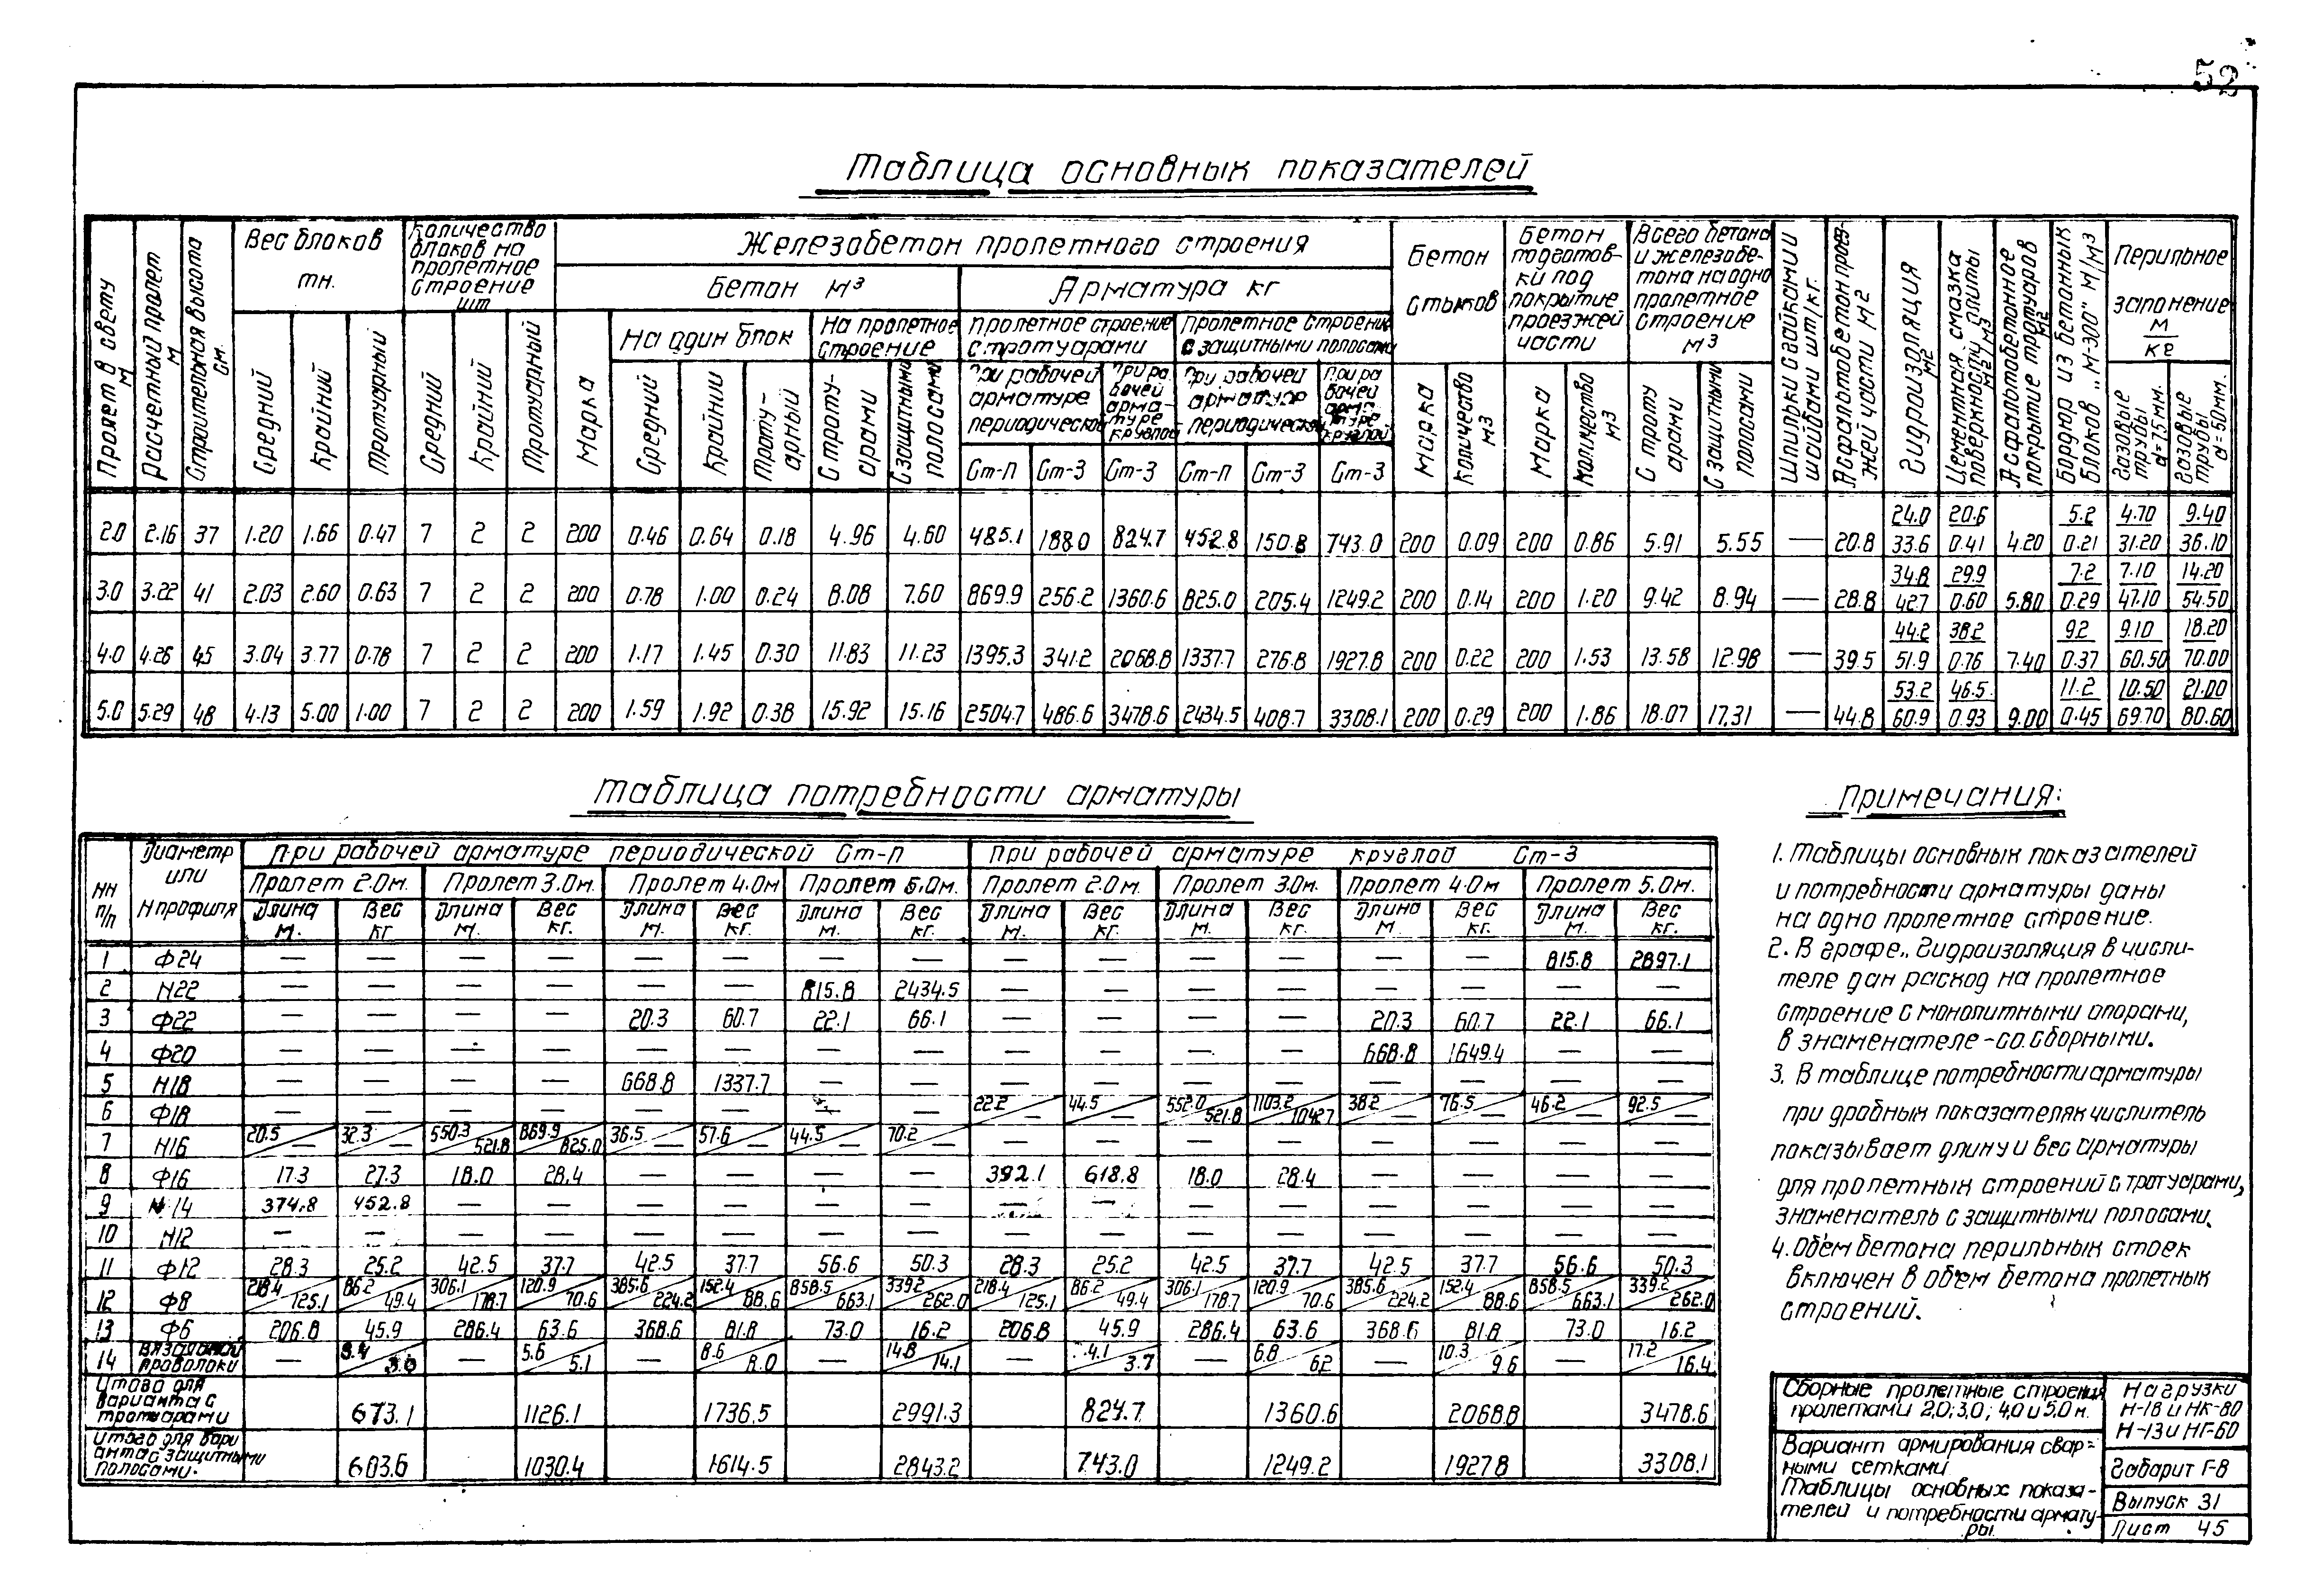 52
Таблица основных показателей
Пролет в свету м | Расчетный пролет м | Строительная высота см. | Вес блоков тн. | Количество блоков на пролетное строение шт | Железобетон пролетного строения | Бетон стыков | Бетон подготовки под покрытие проезжей части | Всего бетона и железобетона на одно пролетное строение м³ | Шпильки с гайками и шайбами шт/кг. | Асфальтобетон проезжей части м2 | Гидроизоляция м2 | Цементная смазка поверхности плиты м2 м3 | Асфальтобетонное покрытие тротуаров м2 | Бордюр из бетонных блоков „М-300" м/м3 | Перильное заполнение м кг
Бетон м³ | Арматура кг
На один блок | На пролетное строение | Пролетное строение с тротуарами | Пролетное строение с защитными полосами
При рабочей арматуре периодической | При рабочей арматуре круглой | При рабочей арматур периодической | При рабочей арматуре круглой
Средний | Крайний | Тротуарный | Средний | Крайний | Тротуарный | Марка | Средний | Крайний | Тротуарный | С тротуарами | С защитными полосами | Ст-П | Ст-3 | Ст-3 | Ст-П | Ст-3 | Ст-3 | Марка | Количество м3 | Марка | Количество м3 | С тротуарами | С защитными полосами | Газовые трубы d=75мм. | Газовые трубы d=50мм.
2.0 | 2.16 | 37 | 1.20 | 1.66 | 0.47 | 7 | 2 | 2 | 200 | 0.46 | 0.64 | 0.18 | 4.96 | 4.60 | 485.1 | 188.0 | 824.7 | 452.8 | 150.8 | 743.0 | 200 | 0.09 | 200 | 0.86 | 5.91 | 5.55 | — | 20.8 | 24.0/33.6 | 20.6/0.41 | 4.20 | 5.2/0.21 | 4.70/31.20 | 9.40/36.10
3.0 | 3.22 | 41 | 2.03 | 2.60 | 0.63 | 7 | 2 | 2 | 200 | 0.78 | 1.00 | 0.24 | 8.08 | 7.60 | 869.9 | 256.2 | 1360.6 | 825.0 | 205.4 | 1249.2 | 200 | 0.14 | 200 | 1.20 | 9.42 | 8.94 | — | 28.8 | 34.8/42.7 | 29.9/0.60 | 5.80 | 7.2/0.29 | 7.10/47.10 | 14.20/54.50
4.0 | 4.26 | 45 | 3.04 | 3.77 | 0.78 | 7 | 2 | 2 | 200 | 1.17 | 1.45 | 0.30 | 11.83 | 11.23 | 1395.3 | 341.2 | 2068.8 | 1337.7 | 276.8 | 1927.8 | 200 | 0.22 | 200 | 1.53 | 13.58 | 12.98 | — | 39.5 | 44.2/51.9 | 38.2/0.76 | 7.40 | 9.2/0.37 | 9.10/60.50 | 18.20/70.00
5.0 | 5.29 | 48 | 4.13 | 5.00 | 1.00 | 7 | 2 | 2 | 200 | 1.59 | 1.92 | 0.38 | 15.92 | 15.16 | 2504.7 | 486.6 | 3478.6 | 2434.5 | 408.7 | 3308.1 | 200 | 0.29 | 200 | 1.86 | 18.07 | 17.31 | — | 44.8 | 53.2/60.9 | 46.5/0.93 | 9.00 | 11.2/0.45 | 10.50/69.70 | 21.00/80.60
Таблица потребности арматуры
НН п/п | Диаметр или Н профиля | При рабочей арматуре периодической Ст-П | При рабочей арматуре круглой Ст-3
Пролет 2.0м. | Пролет 3.0м. | Пролет 4.0м | Пролет 5.0м. | Пролет 2.0м. | Пролет 3.0м. | Пролет 4.0м | Пролет 5.0м.
Длина м. | Вес кг | Длина м. | Вес кг. | Длина м. | Вес кг. | Длина м. | Вес кг. | Длина м. | Вес кг. | Длина м. | Вес кг. | Длина м. | Вес кг. | Длина м. | Вес кг.
1 | Ф24 | — | — | — | — | — | — | — | — | — | — | — | — | — | — | 815.8 | 2897.1
2 | Н22 | — | — | — | — | — | — | 815.8 | 2434.5 | — | — | — | — | — | — | — | —
3 | Ф22 | — | — | — | — | 20.3 | 60.7 | 22.1 | 66.1 | — | — | — | — | 20.3 | 60.7 | 22.1 | 66.1
4 | Ф20 | — | — | — | — | — | — | — | — | — | — | — | — | 668.8 | 1649.4 | — | —
5 | Н18 | — | — | — | — | 668.8 | 1337.7 | — | — | — | — | — | — | — | — | — | —
6 | Ф18 | — | — | — | — | — | — | — | — | 22.2/— | 44.5/— | 552.0/521.8 | 1103.2/1042.7 | 38.2/— | 76.5/— | 46.2/— | 92.5/—
7 | Н16 | 20.5/— | 32.3/— | 550.3/521.8 | 869.9/825.0 | 36.5/— | 57.6/— | 44.5/— | 70.2/— | — | — | — | — | — | — | — | —
8 | Ф16 | 17.3 | 27.3 | 18.0 | 28.4 | — | — | — | — | 392.1 | 618.8 | 18.0 | 28.4 | — | — | — | —
9 | N 14 | 374.8 | 452.8 | — | — | — | — | — | — | — | — | — | — | — | — | — | —
10 | Н12 | — | — | — | — | — | — | — | — | — | — | — | — | — | — | — | —
11 | Ф12 | 28.3 | 25.2 | 42.5 | 37.7 | 42.5 | 37.7 | 56.6 | 50.3 | 28.3 | 25.2 | 42.5 | 37.7 | 42.5 | 37.7 | 56.6 | 50.3
12 | Ф8 | 218.4/125.1 | 86.2/49.4 | 306.1/178.7 | 120.9/70.6 | 385.6/224.2 | 152.4/88.6 | 858.5/663.1 | 339.2/262.0 | 218.4/125.1 | 86.2/49.4 | 306.1/178.7 | 120.9/70.6 | 385.6/224.2 | 152.4/88.6 | 858.5/663.1 | 339.2/262.0
13 | Ф6 | 206.8 | 45.9 | 286.4 | 63.6 | 368.6 | 81.8 | 73.0 | 16.2 | 206.8 | 45.9 | 286.4 | 63.6 | 368.6 | 81.8 | 73.0 | 16.2
14 | вязальной проволоки | — | 3.0 | — | 5.6/5.1 | — | 8.6/8.0 | — | 14.8/14.1 | — | 4.1/3.7 | — | 6.8/6.2 | — | 10.3/9.6 | — | 17.2/16.4
Итого для варианта с тротуарами | 673.1 | 1126.1 | 1736.5 | 2991.3 | 824.7 | 1360.6 | 2068.8 | 3478.6
Итого для варианта с защитными полосами. | 603.6 | 1030.4 | 1614.5 | 2843.2 | 743.0 | 1249.2 | 1927.8 | 3308.1
Примечания:
1. Таблицы основных показателей
и потребности арматуры даны
на одно пролетное строение.
2. В графе „Гидроизоляция в числи-
теле дан расход на пролетное
строение с монолитными опорами,
в знаменателе-со сборными.
3. В таблице потребности арматуры
при дробных показателях числитель
показывает длину и вес арматуры
для пролетных строений с тротуарами,
знаменатель с защитными полосами.
4. Объем бетона перильных стоек
включен в объем бетона пролетных
строений.
Сборные пролетные строения
пролетами 2.0; 3.0; 4.0 и 5.0 м.
Вариант армирования свар-
ными сетками
Таблицы основных показа-
телей и потребности армату-
ры.
Нагрузки
Н-18 и НК-80
Н-13 и НГ-60
Габарит Г-8
Выпуск 31
Лист 45